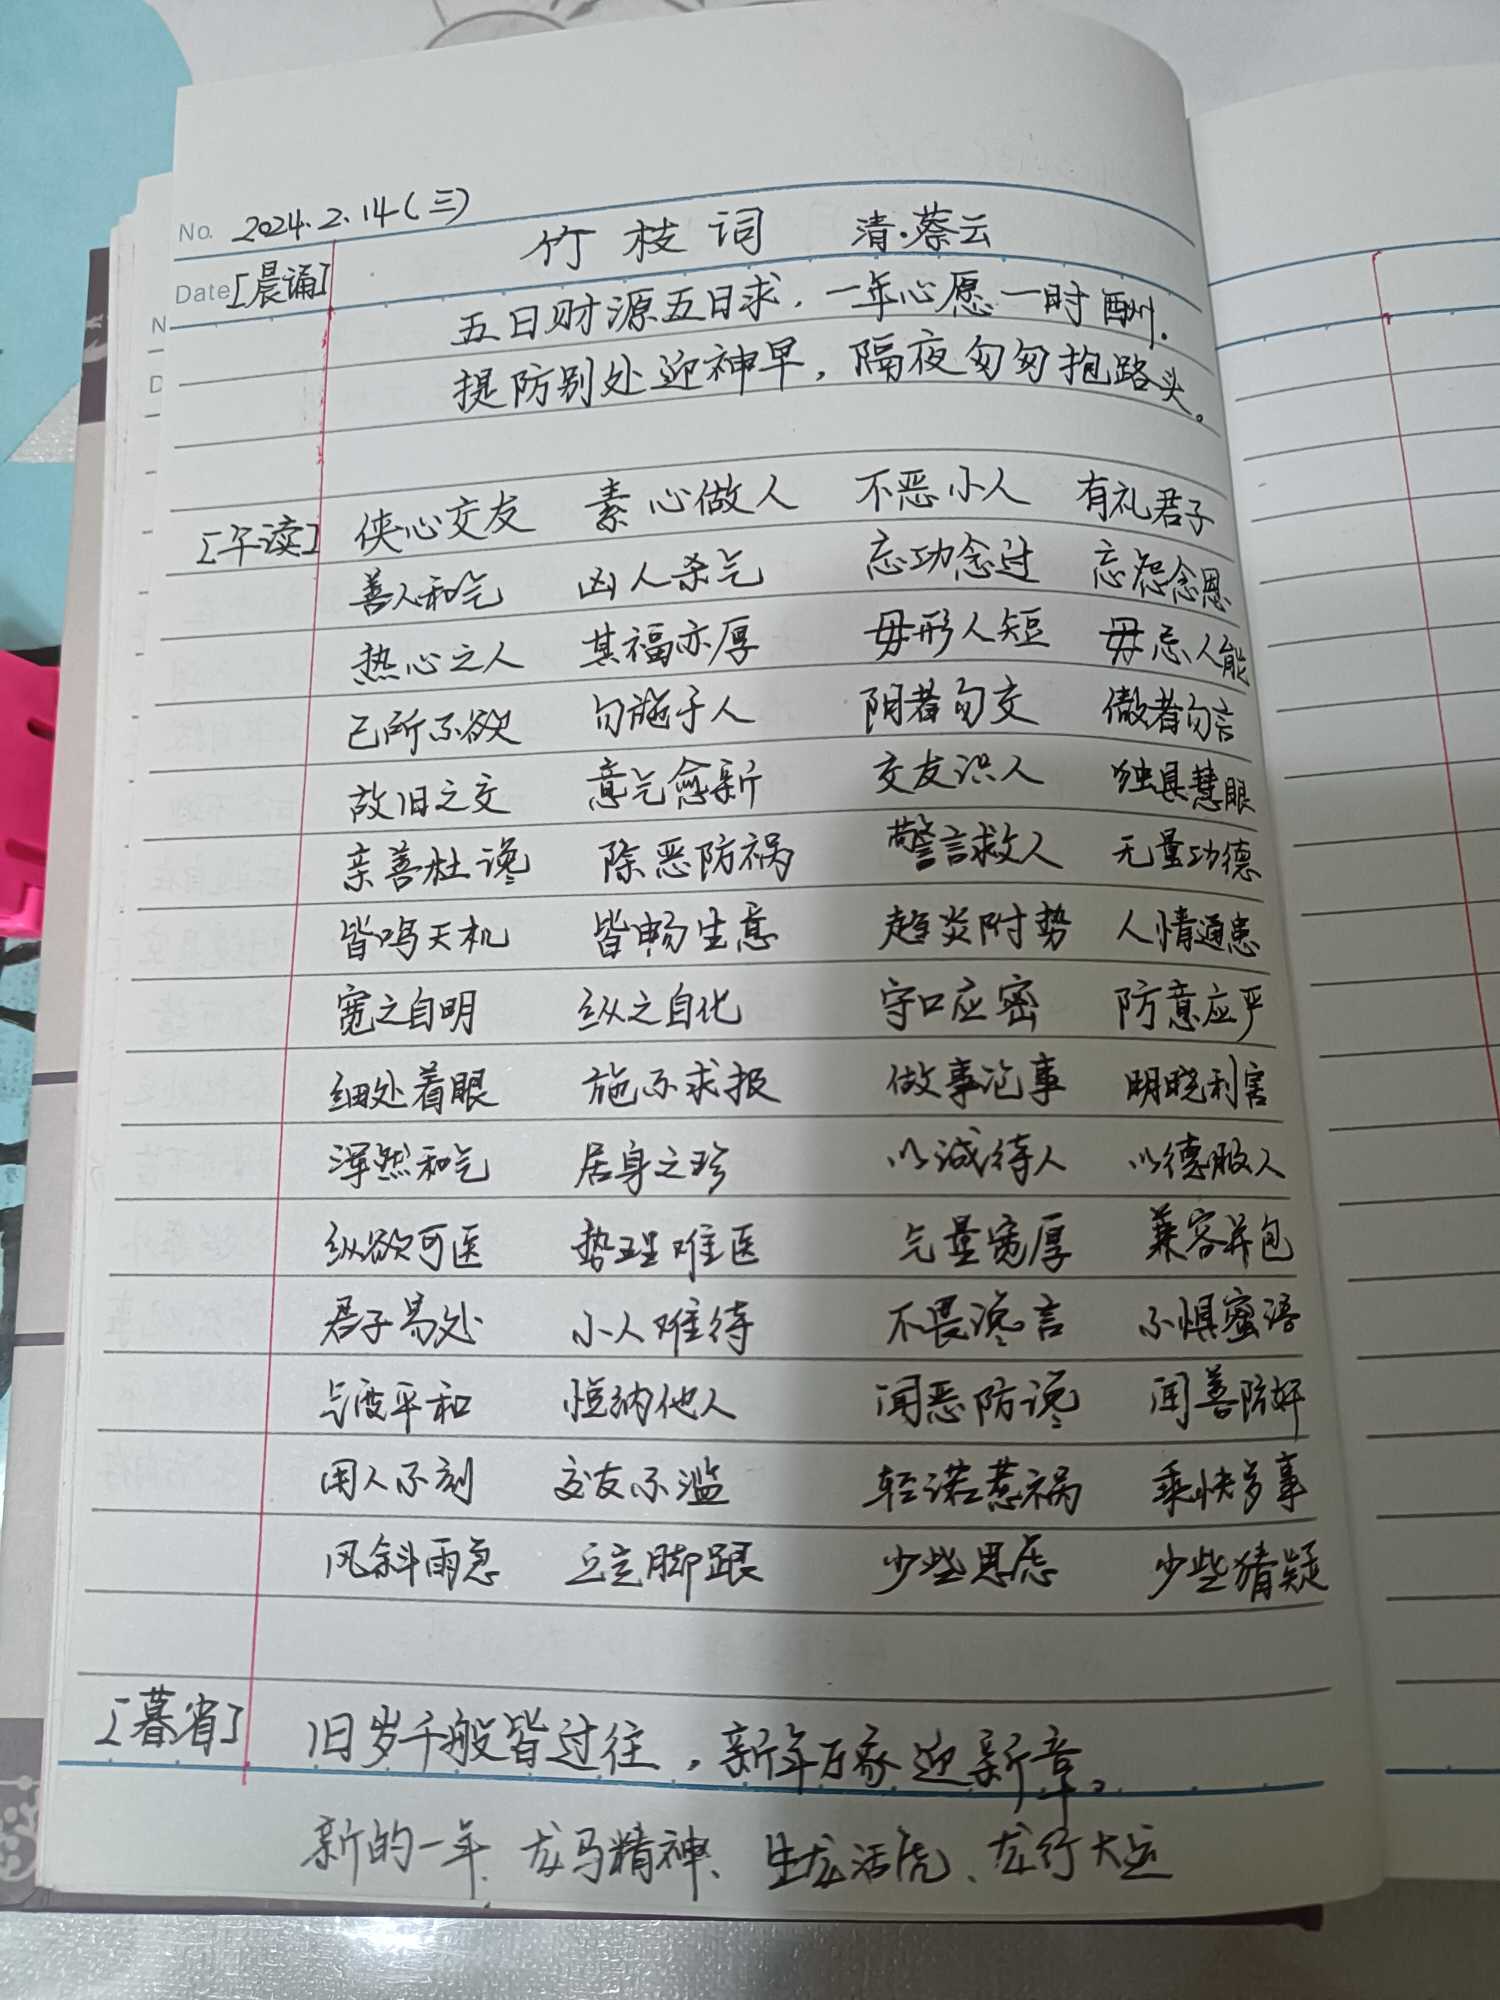 No. 2024.2.14(三)
竹枝词 清·蔡云
Date [晨诵]
五日财源五日求，一年心愿一时酬.
提防别处迎神早，隔夜匆匆抱路头。
[午读] 侠心交友 素心做人 不恶小人 有礼君子
善人和气 凶人杀气 忘功念过 忘怨念恩
热心之人 其福亦厚 毋形人短 毋忌人能
己所不欲 勿施于人 阴者勿交 傲者勿言
故旧之交 意气愈新 交友识人 独具慧眼
亲善杜谗 除恶防祸 警言救人 无量功德
皆鸣天机 皆畅生意 趋炎附势 人情通患
宽之自明 纵之自化 守口应密 防意应严
细处着眼 施不求报 做事论事 明晓利害
浑然和气 居身之珍 以诚待人 以德服人
纵欲可医 势理难医 气量宽厚 兼容并包
君子易处 小人难待 不畏谗言 不惧蜜语
气度平和 恒纳他人 闻恶防谗 闻善防奸
用人不刻 交友不滥 轻诺惹祸 乘快多事
风斜雨急 立定脚跟 少些思虑 少些猜疑
[暮省] 旧岁千般皆过往，新年万象迎新章。
新的一年、龙马精神、生龙活虎、龙行大运
N
D